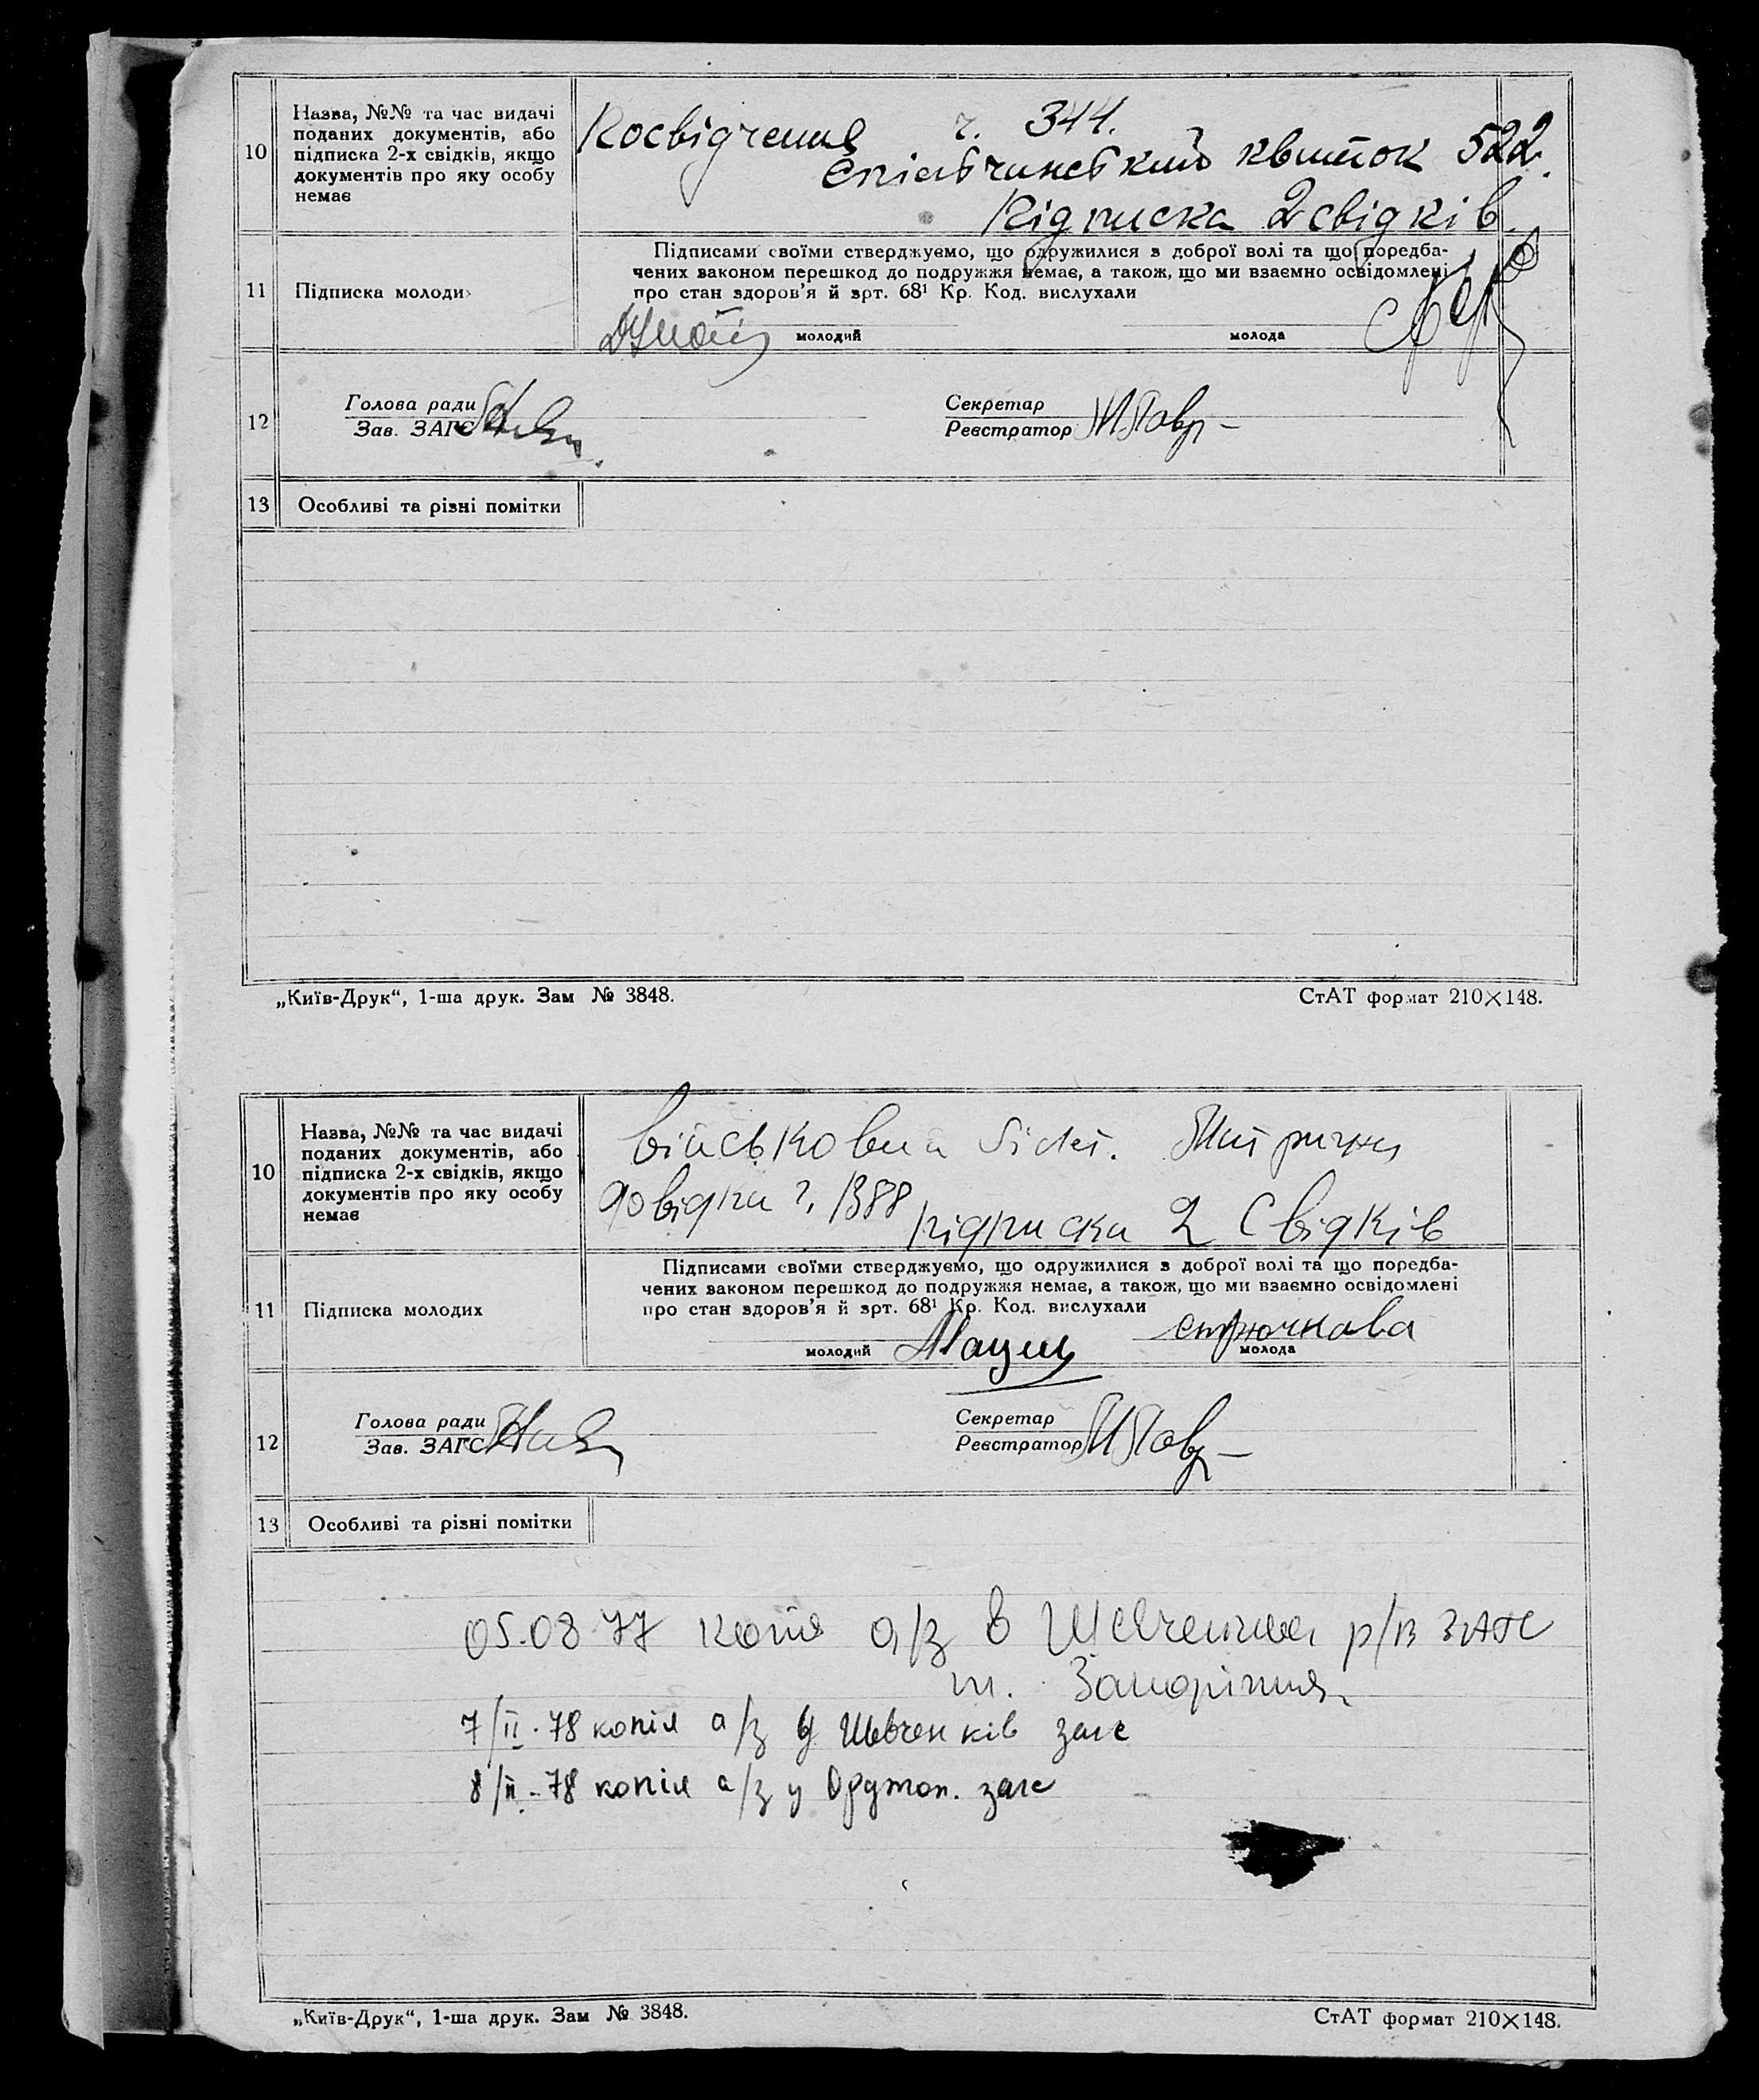 10
Назва, №№ та час видачі
поданих документів, або
підписка 2-х свідків, якщо
документів про яку особу
немає
Посвідчення ч. 344.
квиток 522.
Підписка 2 свідків.
11
Підписка молоди
Підписами своїми стверджуємо, що одружилися з доброї волі та що поредба-
чених законом перешкод до подружжя немає, а також, що ми взаємно освідомлені
про стан здоров'я й зрт. 68¹ Кр. Код. вислухали
молодий
молода
12
Голова ради
Зав. ЗАГС
Секретар
Реєстратор
13
Особливі та різні помітки
„Київ-Друк“, 1-ша друк. Зам № 3848.
СтАТ формат 210×148.
10
Назва, №№ та час видачі
поданих документів, або
підписка 2-х свідків, якщо
документів про яку особу
немає
військовий білет.
довідка ч. 1388 підписка 2 свідків
11
Підписка молодих
Підписами своїми стверджуємо, що одружилися з доброї волі та що поредба-
чених законом перешкод до подружжя немає, а також, що ми взаємно освідомлені
про стан здоров'я й зрт. 68¹ Кр. Код. вислухали
молодий
молода
12
Голова ради
Зав. ЗАГС
Секретар
Реєстратор
13
Особливі та різні помітки
05.08 77 копія а/з в р/в ЗАГС
м. Запоріжжя
7/II-78 копія а/з у Шевченків загс
8/II-78 копія а/з у Орджон. загс
„Київ-Друк“, 1-ша друк. Зам № 3848.
СтАТ формат 210×148.